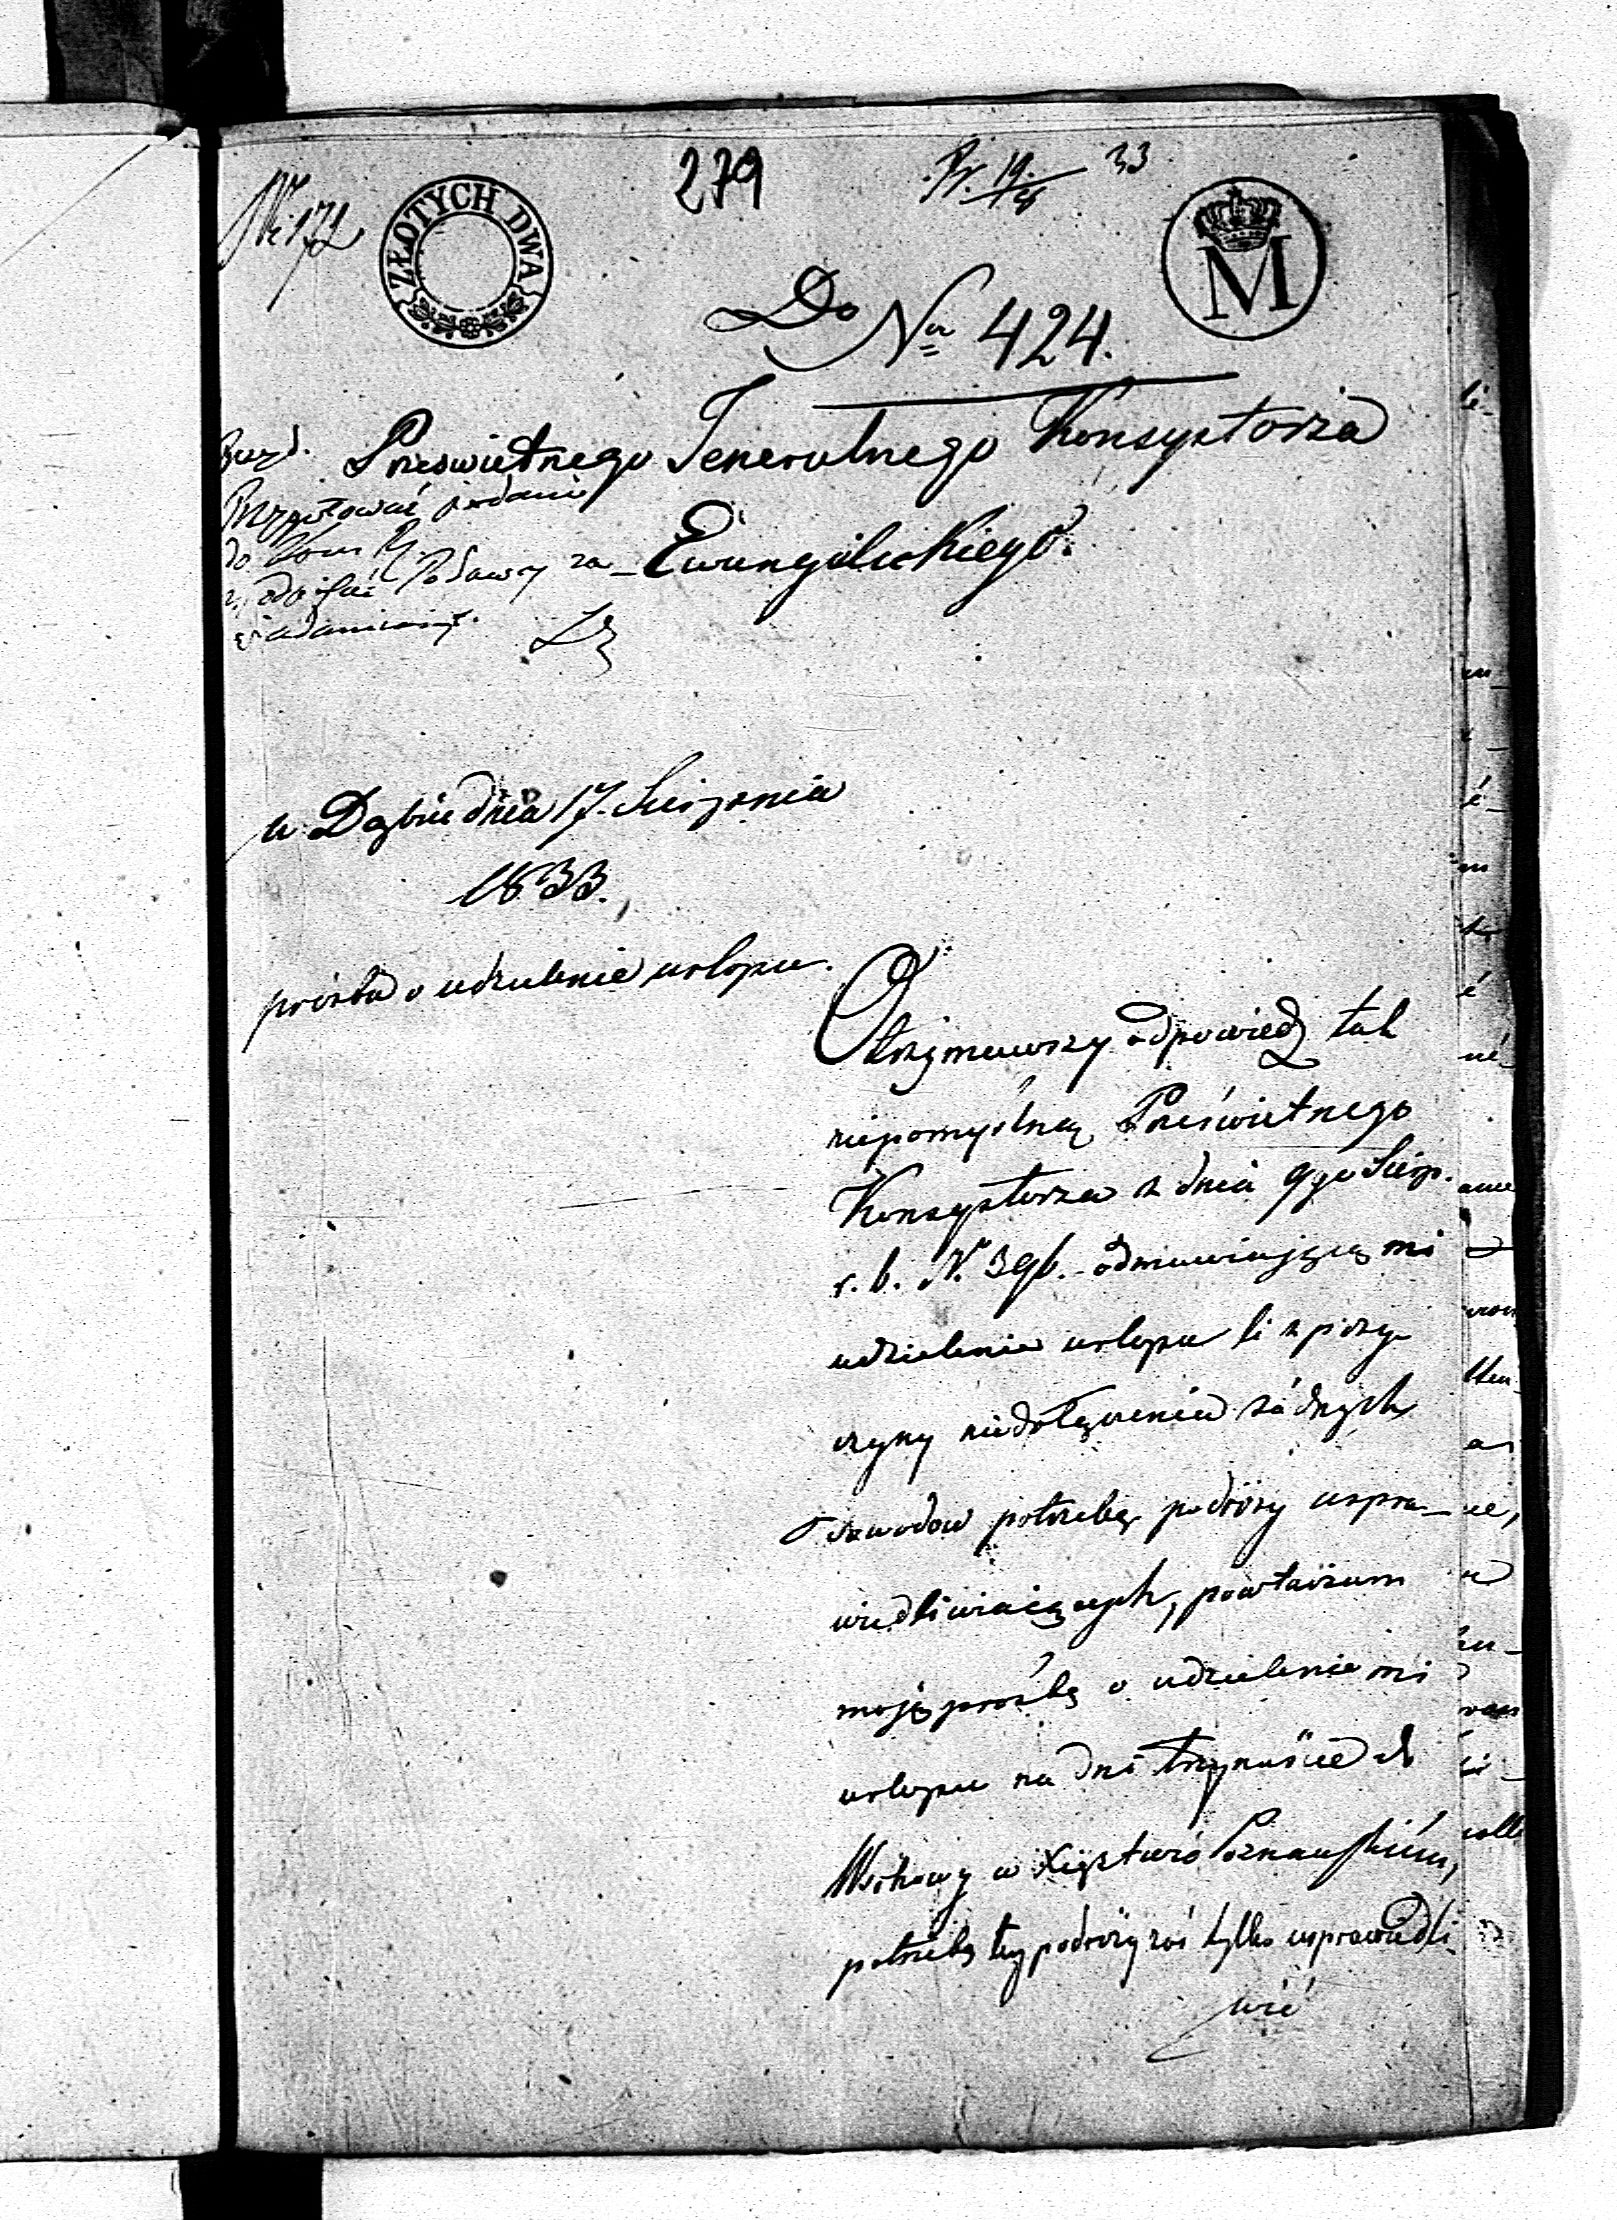 279
33
Nr 172
ZŁOTYCH DWA
M
Do
Nr 424.
Prześwietnego Jeneralnego Konsystorza
Ewangelickiego.
Przygotować podanie
do
odpisać Podawcy za
wiadomienie.
w Dąbiu dnia 17. Sierpnia
1833.
prośba o udzielenie urlopu.
Otrzymawszy odpowiedz tak
niepomyślną Prześwietnego
Konsystorza z dnia 9go Sierp.
r. b. N. 396. odmawiającą mi
udzielenia urlopu li z przy-
czyny niedołączenia żádnych
dowodow potrzebę podróży uspra-
wiedliwiaiących, powtarzam
moję prośbę o udzielenie mi
urlopu na dni trzynaście do
Wschowy w Xięztwie Poznańskiém,
potrzebę tey podróży zaś tylko usprawiedli-
wić